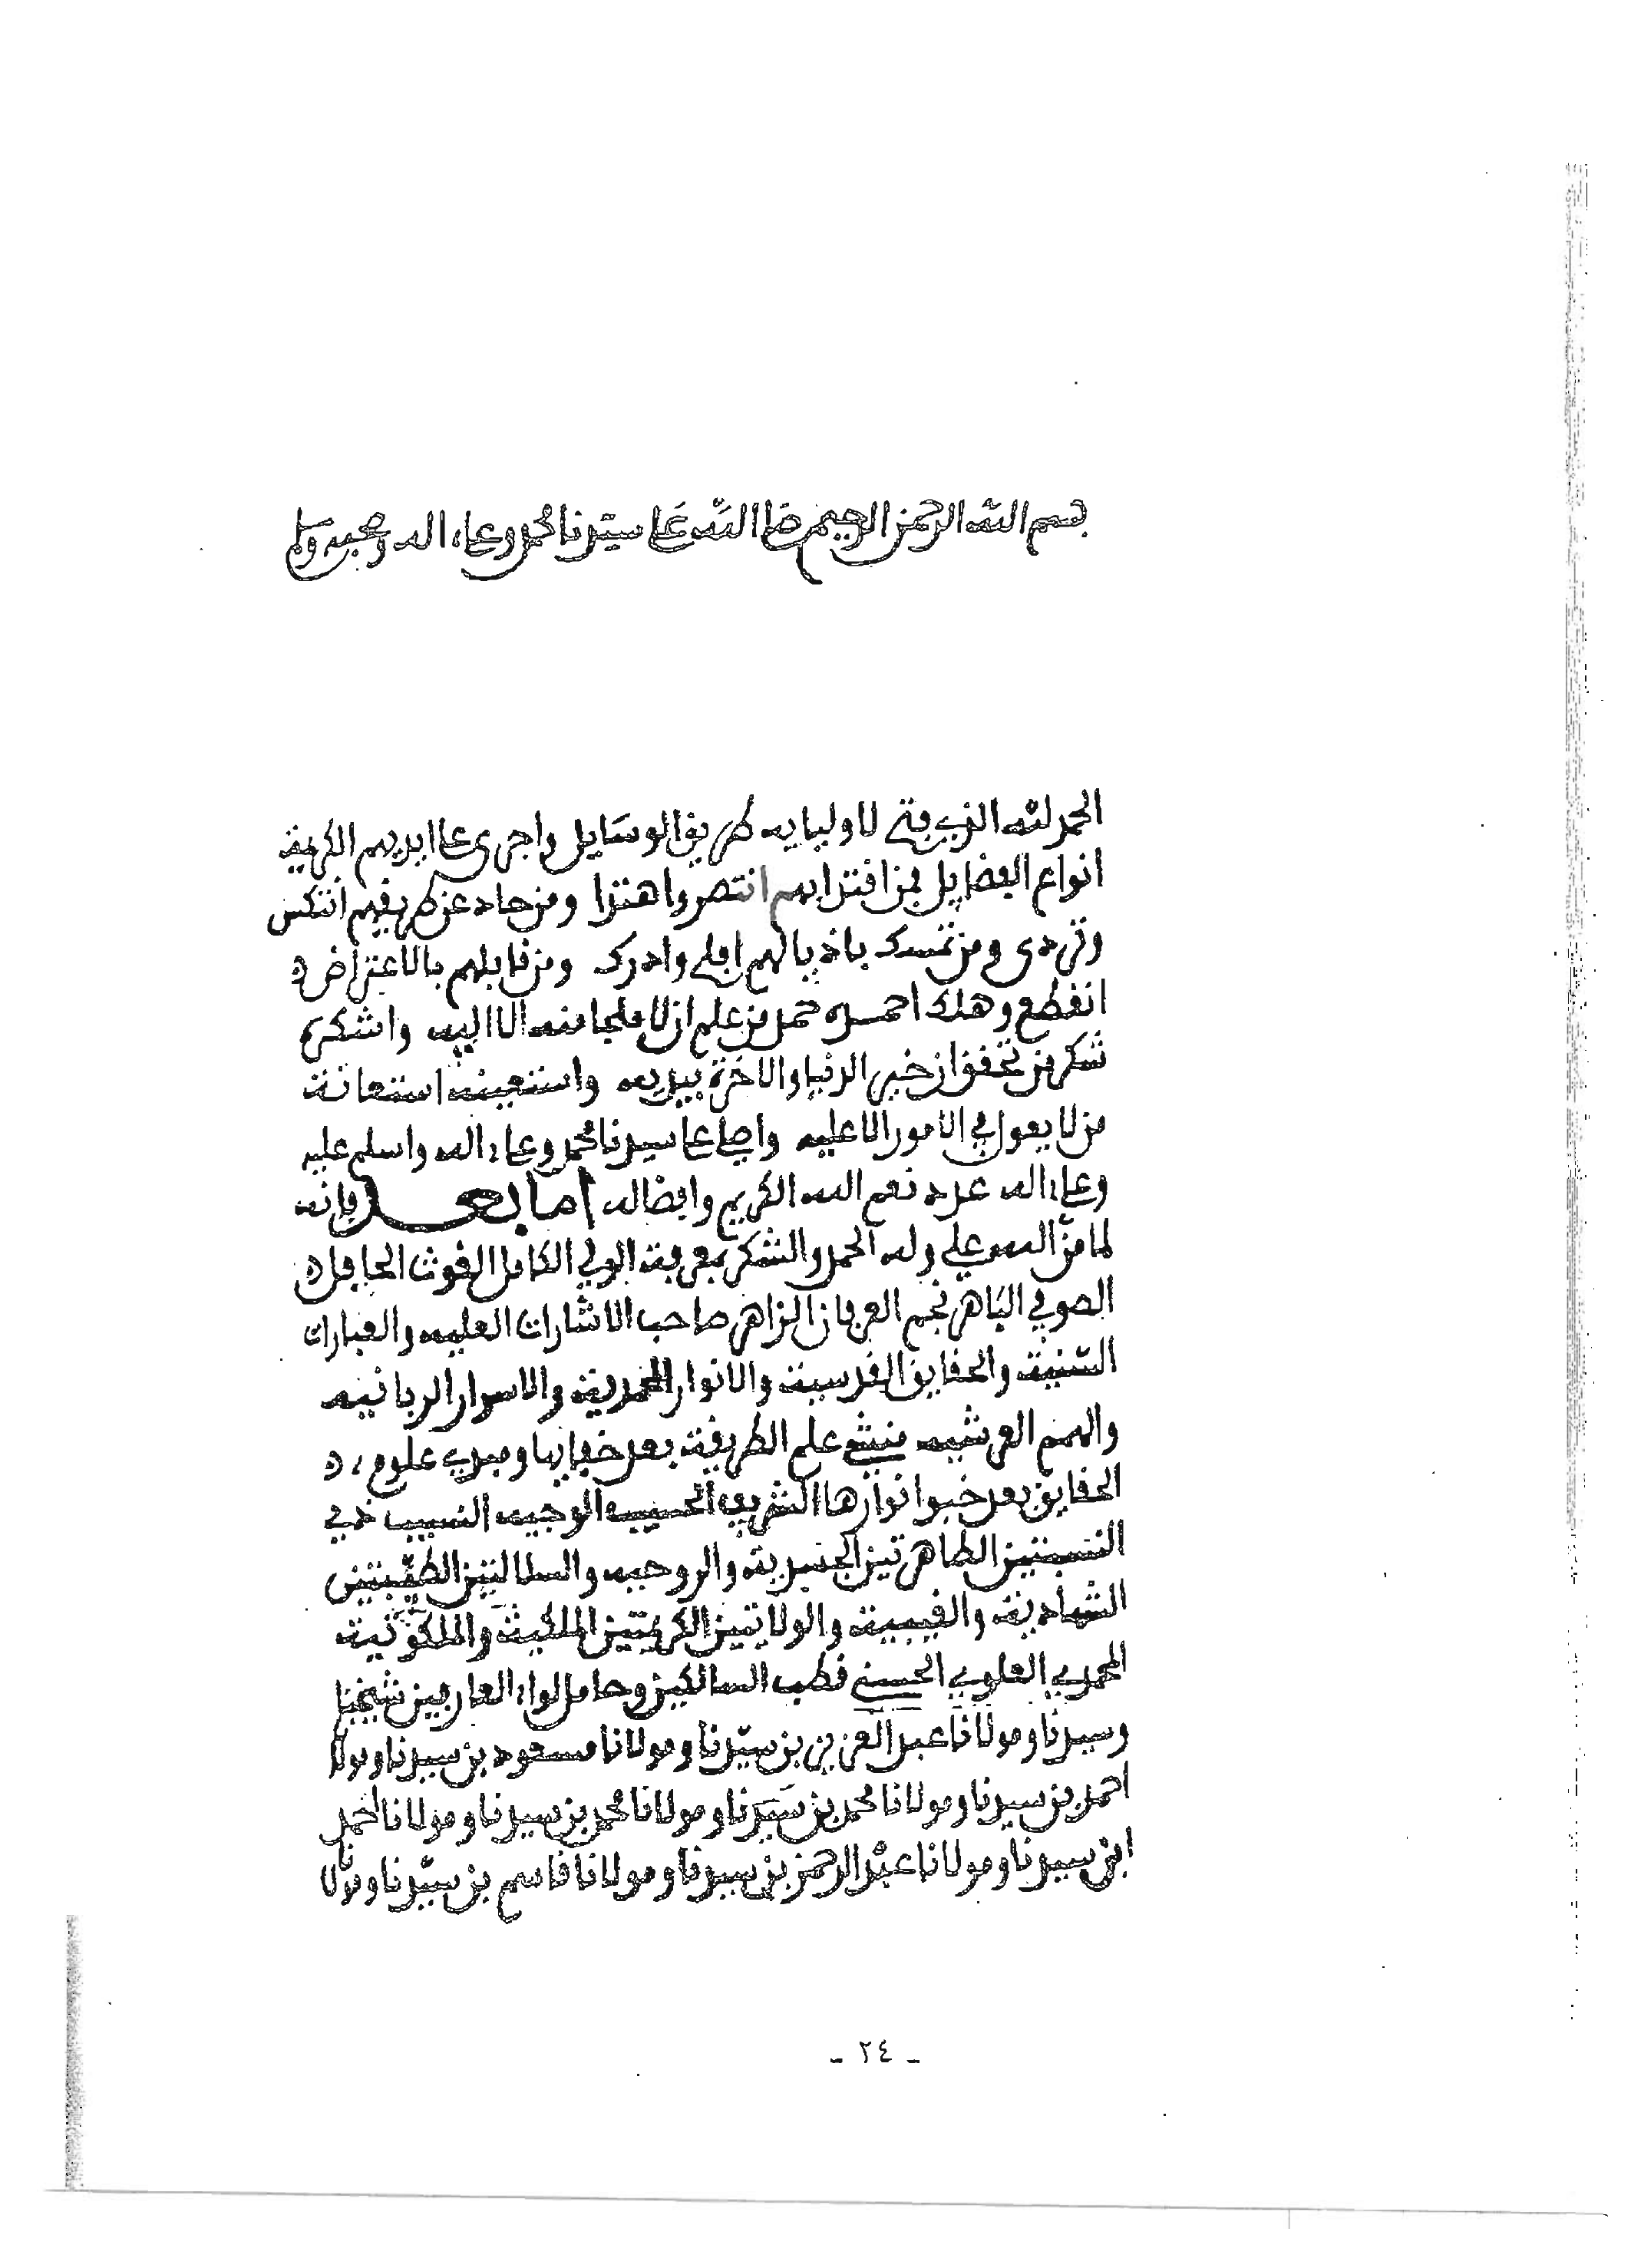 بسم الله الرحمن الرحيم صلى الله على سيدنا محمد وعلى اله وصحبه وسلم
الحمد لله الذي فتح لاوليايه طريق الوسايل واجرى على ايديهم الكريمة
انواع الفضايل فمن اقتدا بهم انتصر واهتدا ومن حاد عن طريقهم انتكس
وتردى ومن تمسك باذيالهم افلح وادرك ومن قابلهم بالاعتراض
انقطع وهلك احمده حمد من علم ان لا ملجا منه الا اليه واشكره
شكر من تحقق ان خير الدنيا والاخرة بيديه واستعينه استعانة
من لا يعول في الامور الا عليه واصلي على سيدنا محمد وعلى اله واسلم عليه
وعلى اله عدد نعم الله الكريم وافضاله اما بعد فانه
لما منّ الله علي وله الحمد والشكر بمعرفة الولي الكامل الغوث الحافل
الصوفي الباهر نجم العرفان الزاهر صاحب الاشارات العلية والعبارات
السنية والحقايق القدسية والانوار المحمدية والاسرار الربانيه
والهمم العرشيه منشئ علم الطريقة بعد خفايها ومبدي علوم
الحقايق بعد خبوا نوارها الشريف الحسيب الوجيه النسيب ذي
النسبتين الطاهرتين الجسدية والروحيه والسلالتين الطيّبتين
الشهادية والغيبية والولايتين الكريمتين الملكية والملكوتية
المحمدي العلوي الحسني قطب السالكين وحامل لواء العارفين شيخنا
وسيدنا ومولانا عبد العزيز بن سيّدنا ومولانا مسعود بن سيدنا ومولانا
احمد بن سيدنا ومولانا محمد بن سيدنا ومولانا محمد بن سيدنا ومولانا احمد
ابن سيدنا ومولانا عبد الرحمن بن سيدنا ومولانا قاسم بن سيّدنا ومولانا
- ٢٤ -